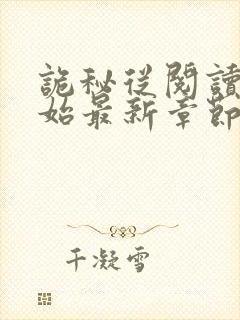 詭秘從閱讀
始最新章節
千凝雪